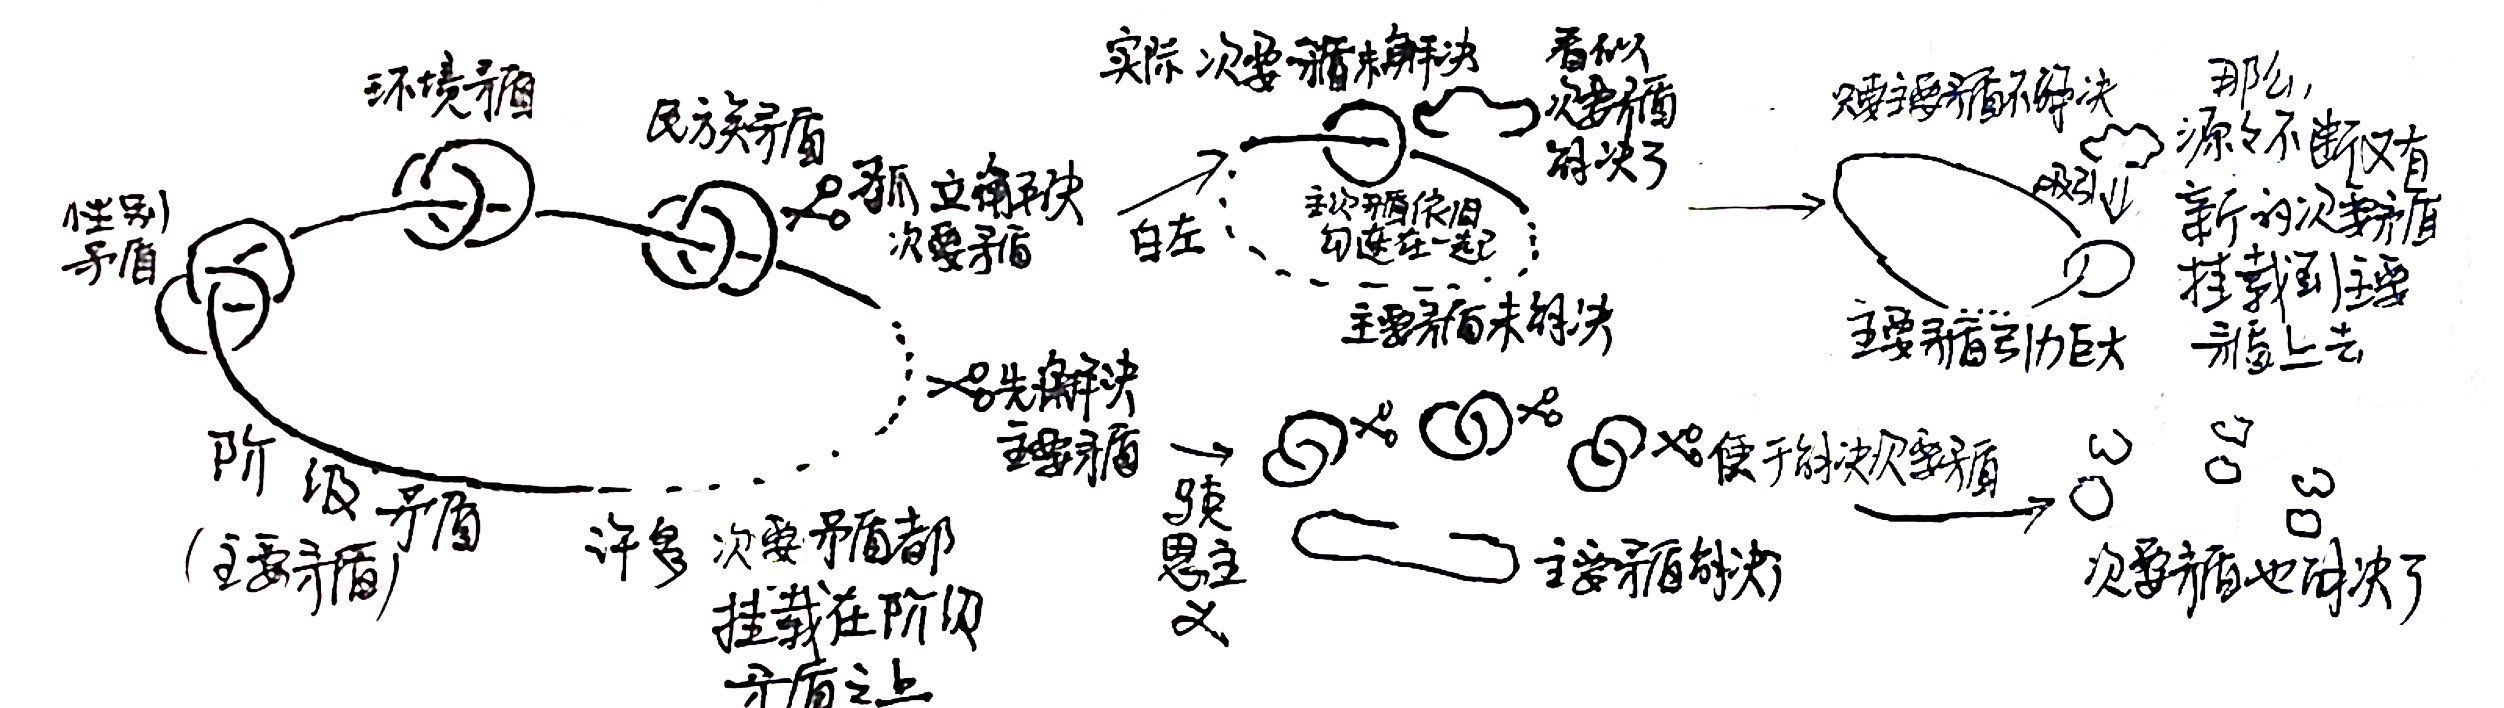 性别
矛盾
环境矛盾
民族矛盾
孤立解决
次要矛盾
阶级矛盾
(主要矛盾)
许多次要矛盾都
挂载在阶级
矛盾之上
先解决
主要矛盾
白左
实际次要矛盾未解决
看似
次要矛盾
解决了
主次矛盾依旧
勾连在一起
主要矛盾未解决
只要主要矛盾不解决
吸引
主要矛盾引力巨大
那么,
源々不断又有
新的次要矛盾
挂载到主要
矛盾上去
马克
思主
义
便于解决次要矛盾
主要矛盾解决了
次要矛盾也解决了